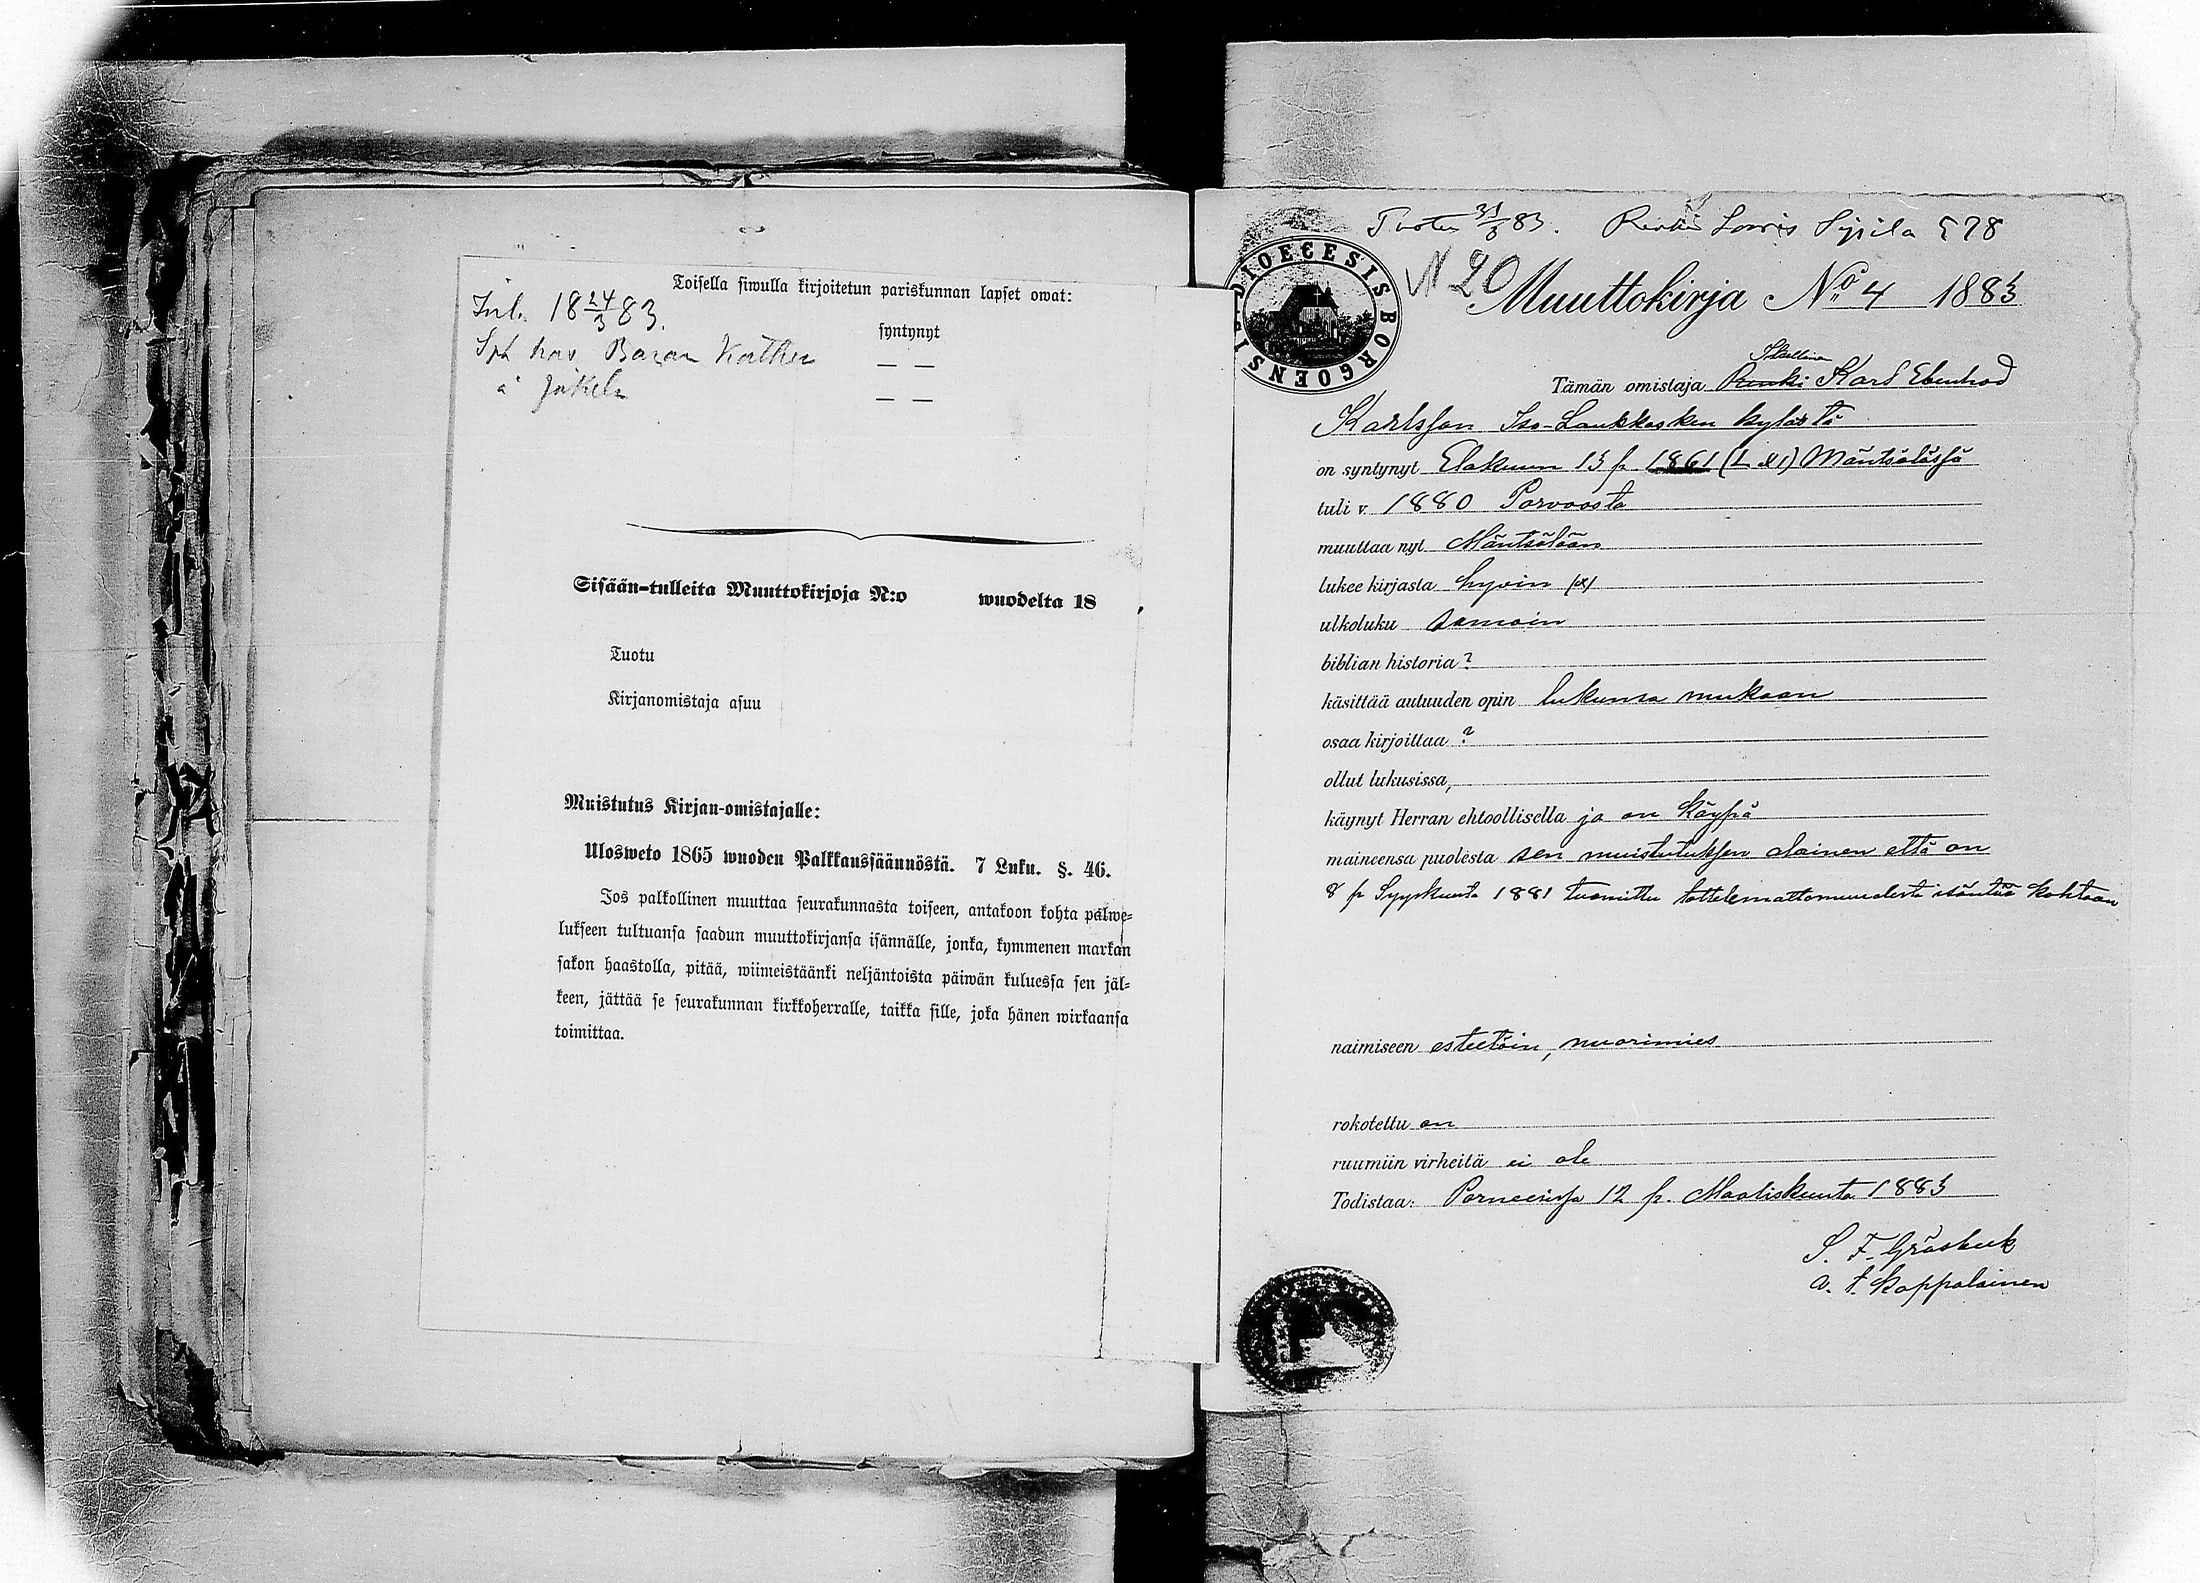 Toisella siwulla kirjoitetun pariskunnan lapset owat:
Inl. 18 24/3 83.
syntynyt
Sph hos
— —
à Jokela
— —
Sisään-tulleita Muuttokirjoja N:o wuodelta 18 .
Tuotu
Kirjanomistaja asuu
Muistutus Kirjan-omistajalle:
Ulosweto 1865 wuoden Palkkaussäännöstä. 7 Luku. §. 46.
Jos palkollinen muuttaa seurakunnasta toiseen, antakoon kohta palwe-
lukseen tultuansa saadun muuttokirjansa isännälle, jonka, kymmenen markan
sakon haastolla, pitää, wiimeistäänki neljäntoista päiwän kuluessa sen jäl-
keen, jättää se seurakunnan kirkkoherralle, taikka sille, joka hänen wirkaansa
toimittaa.
Tuotu 31/3 83. Renki Lovis Sipila 578
DIOECESIS BORGOENSIS
N 20
Muuttokirja No 4 1883
Itsellinen
Tämän omistaja Renki Karl
Karlsson Iso-Laukkosken kylästä
on syntynyt Elokuun 13 p. 1861 Mäntsälässä
tuli v. 1880 Porvoosta
muuttaa nyt Mäntsälään
lukee kirjasta hyvin
ulkoluku samoin
biblian historia ?
käsittää autuuden opin lukunsa mukaan
osaa kirjoittaa ?
ollut lukusissa,
käynyt Herran ehtoollisella ja on käypä
maineensa puolesta sen muistutuksen alainen että on
8 p Syyskuuta 1881 tuomittu tottelemattomuudesta isäntää kohtaan
naimiseen esteetöin, nuorimies
rokotettu on
ruumiin virheitä ei ole
Todistaa: Porneesissa 12 p. Maaliskuuta 1883
S. F. Gråsbeck
v. t. kappalainen